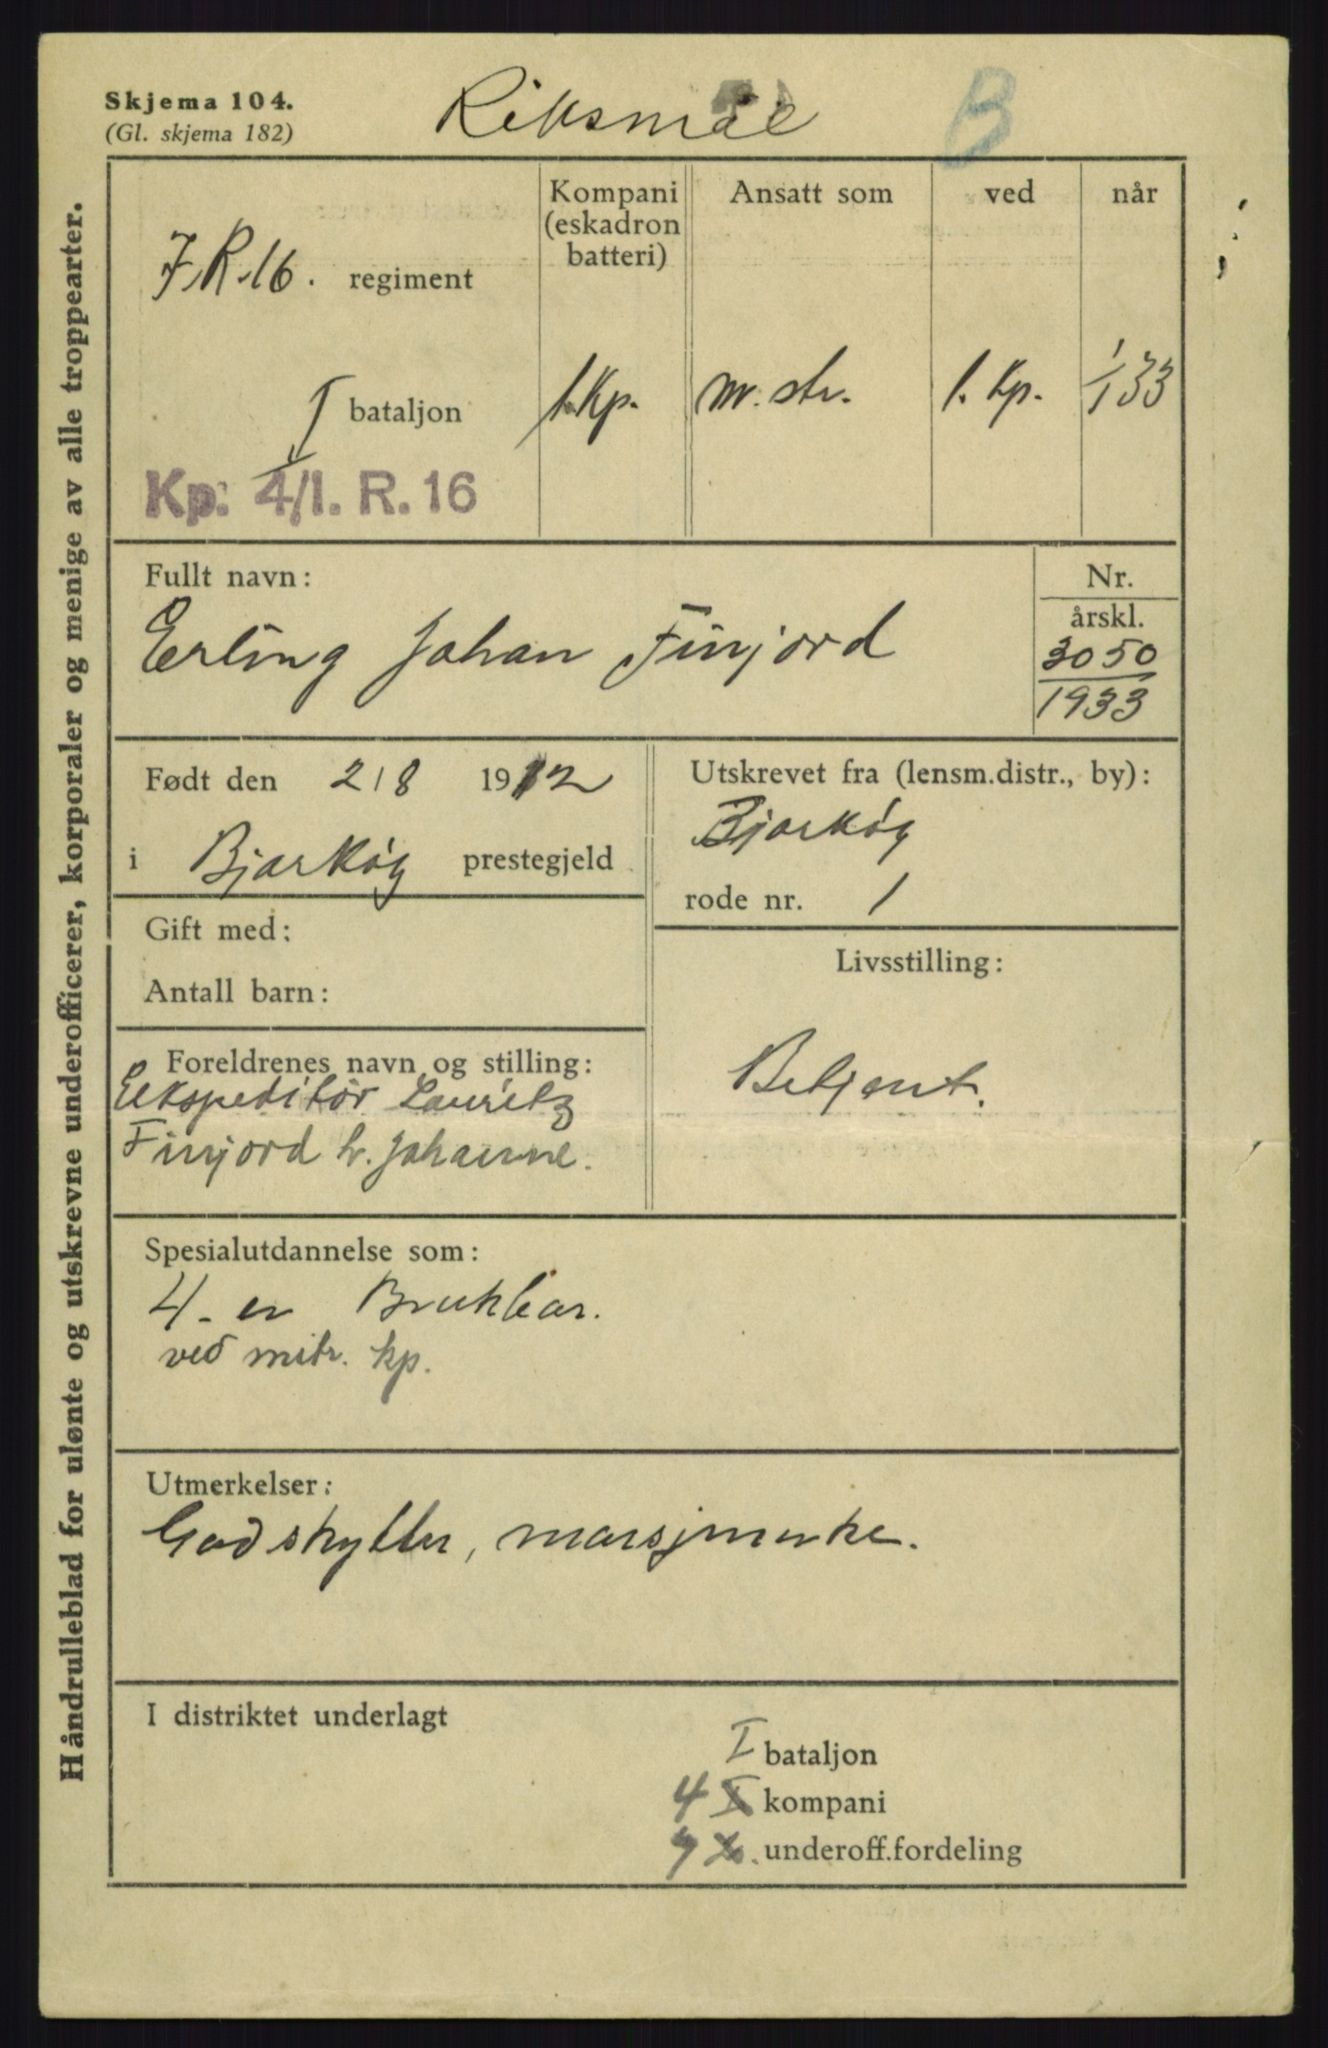 Skjema 104.
(Gl. skjema 182)
Riksmål
B
Håndrulleblad for ulønte og utskrevne underofficerer, korporaler og menige av alle troppearter.
Kompani (eskadron batteri)
Ansatt som
ved
når
I.R.16. regiment
I bataljon
1.Kp.
m. str.
1. Kp.
1/1 33
Kp: 4/I. R. 16
Fullt navn:
Erling Johan Finjord
Nr.
årskl.
3050
1933
Født den 2/8 1912
i Bjarkøy prestegjeld
Utskrevet fra (lensm.distr., by):
Bjarkøy
rode nr. 1
Gift med:
Antall barn:
Livsstilling:
Betjent.
Foreldrenes navn og stilling:
Ekspeditør Lauritz
Finjord h. Johanne.
Spesialutdannelse som:
4-er Brukbar.
ved mitr. kp.
Utmerkelser:
Godskytter, marsjmerke.
I distriktet underlagt
I bataljon
4 kompani
underoff.fordeling